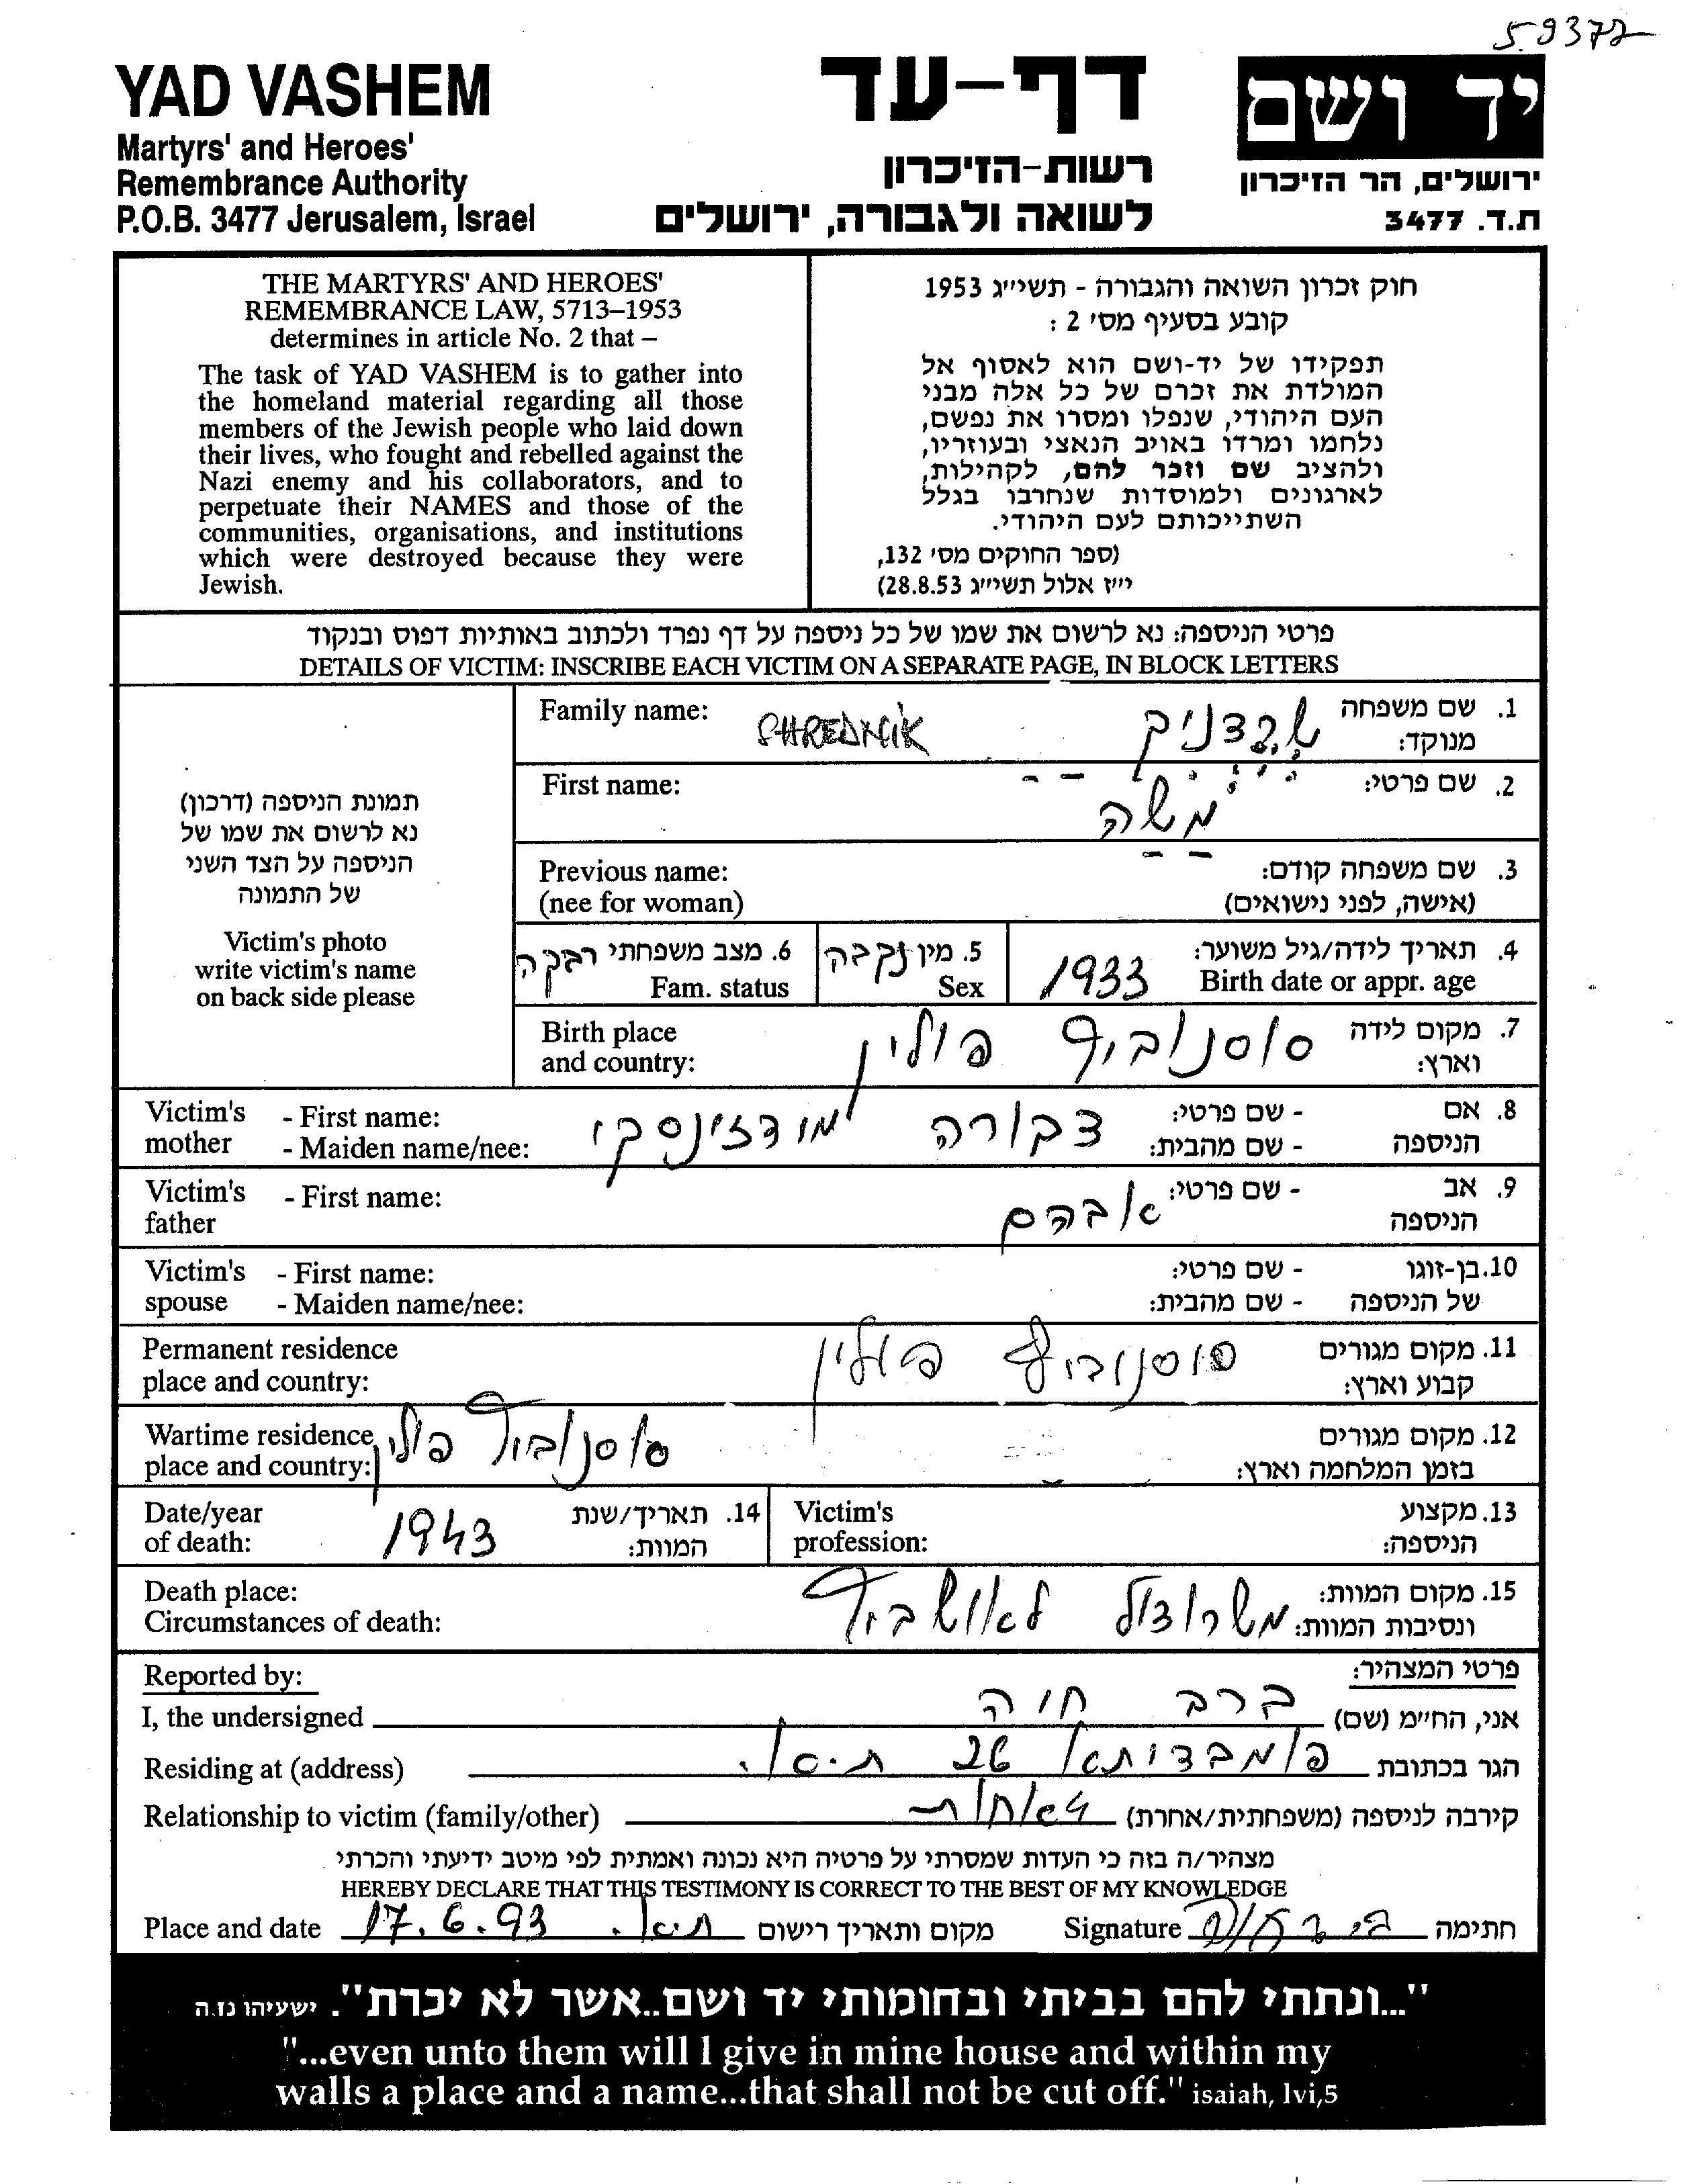 59372
YAD VASHEM
Martyrs' and Heroes'
Remembrance Authority
P.O.B. 3477 Jerusalem, Israel
דף-עד
רשות-הזיכרון
לשואה ולגבורה, ירושלים
יד ושם
ירושלים, הר הזיכרון
ת.ד. 3477
THE MARTYRS' AND HEROES'
REMEMBRANCE LAW, 5713–1953
determines in article No. 2 that –
The task of YAD VASHEM is to gather into
the homeland material regarding all those
members of the Jewish people who laid down
their lives, who fought and rebelled against the
Nazi enemy and his collaborators, and to
perpetuate their NAMES and those of the
communities, organisations, and institutions
which were destroyed because they were
Jewish.
חוק זכרון השואה והגבורה - תשי״ג 1953
קובע בסעיף מס׳ 2 :
תפקידו של יד-ושם הוא לאסוף אל
המולדת את זכרם של כל אלה מבני
העם היהודי, שנפלו ומסרו את נפשם,
נלחמו ומרדו באויב הנאצי ובעוזריו,
ולהציב שם וזכר להם, לקהילות,
לארגונים ולמוסדות שנחרבו בגלל
השתייכותם לעם היהודי.
(ספר החוקים מס׳ 132,
י״ז אלול תשי״ג 28.8.53)
פרטי הניספה: נא לרשום את שמו של כל ניספה על דף נפרד ולכתוב באותיות דפוס ובנקוד
DETAILS OF VICTIM: INSCRIBE EACH VICTIM ON A SEPARATE PAGE, IN BLOCK LETTERS
תמונת הניספה (דרכון)
נא לרשום את שמו של
הניספה על הצד השני
של התמונה
Victim's photo
write victim's name
on back side please
Family name: SHREDNIK שרדניק 1. שם משפחה
מנוקד:
First name: משה 2. שם פרטי:
Previous name: 3. שם משפחה קודם:
(nee for woman) (אישה, לפני נישואים)
4. תאריך לידה/גיל משוער: 1933
Birth date or appr. age
5. מין נקבה
Sex
6. מצב משפחתי רבקה
Fam. status
Birth place סוסנוביץ פולין 7. מקום לידה
and country: וארץ:
Victim's - First name: - שם פרטי: 8. אם
mother - Maiden name/nee: מודזינסקי דבורה - שם מהבית: הניספה
Victim's - First name: - שם פרטי: 9. אב
father אברהם הניספה
Victim's - First name: - שם פרטי: 10. בן-זוגו
spouse - Maiden name/nee: - שם מהבית: של הניספה
Permanent residence סוסנוביץ פולין 11. מקום מגורים
place and country: קבוע וארץ:
Wartime residence סוסנוביץ פולין 12. מקום מגורים
place and country: בזמן המלחמה וארץ:
Date/year 1943 14. תאריך/שנת
of death: המוות:
Victim's 13. מקצוע
profession: הניספה:
Death place: 15. מקום המוות:
Circumstances of death: ונסיבות המוות: לאושביץ
Reported by: פרטי המצהיר:
I, the undersigned ברב חוה אני, החי״מ (שם)
Residing at (address) פומבדיתא 26 ת"א הגר בכתובת
Relationship to victim (family/other) אחות קירבה לניספה (משפחתית/אחרת)
מצהיר/ה בזה כי העדות שמסרתי על פרטיה היא נכונה ואמתית לפי מיטב ידיעתי והכרתי
HEREBY DECLARE THAT THIS TESTIMONY IS CORRECT TO THE BEST OF MY KNOWLEDGE
Place and date 17.6.93 ת.א. מקום ותאריך רישום Signature חתימה
"...ונתתי להם בביתי ובחומותי יד ושם..אשר לא יכרת". ישעיהו נז.ה
"...even unto them will I give in mine house and within my
walls a place and a name...that shall not be cut off." isaiah, lvi,5